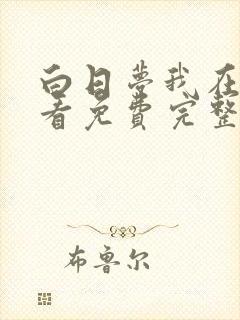 白日梦我在
看免费完整
布鲁尔